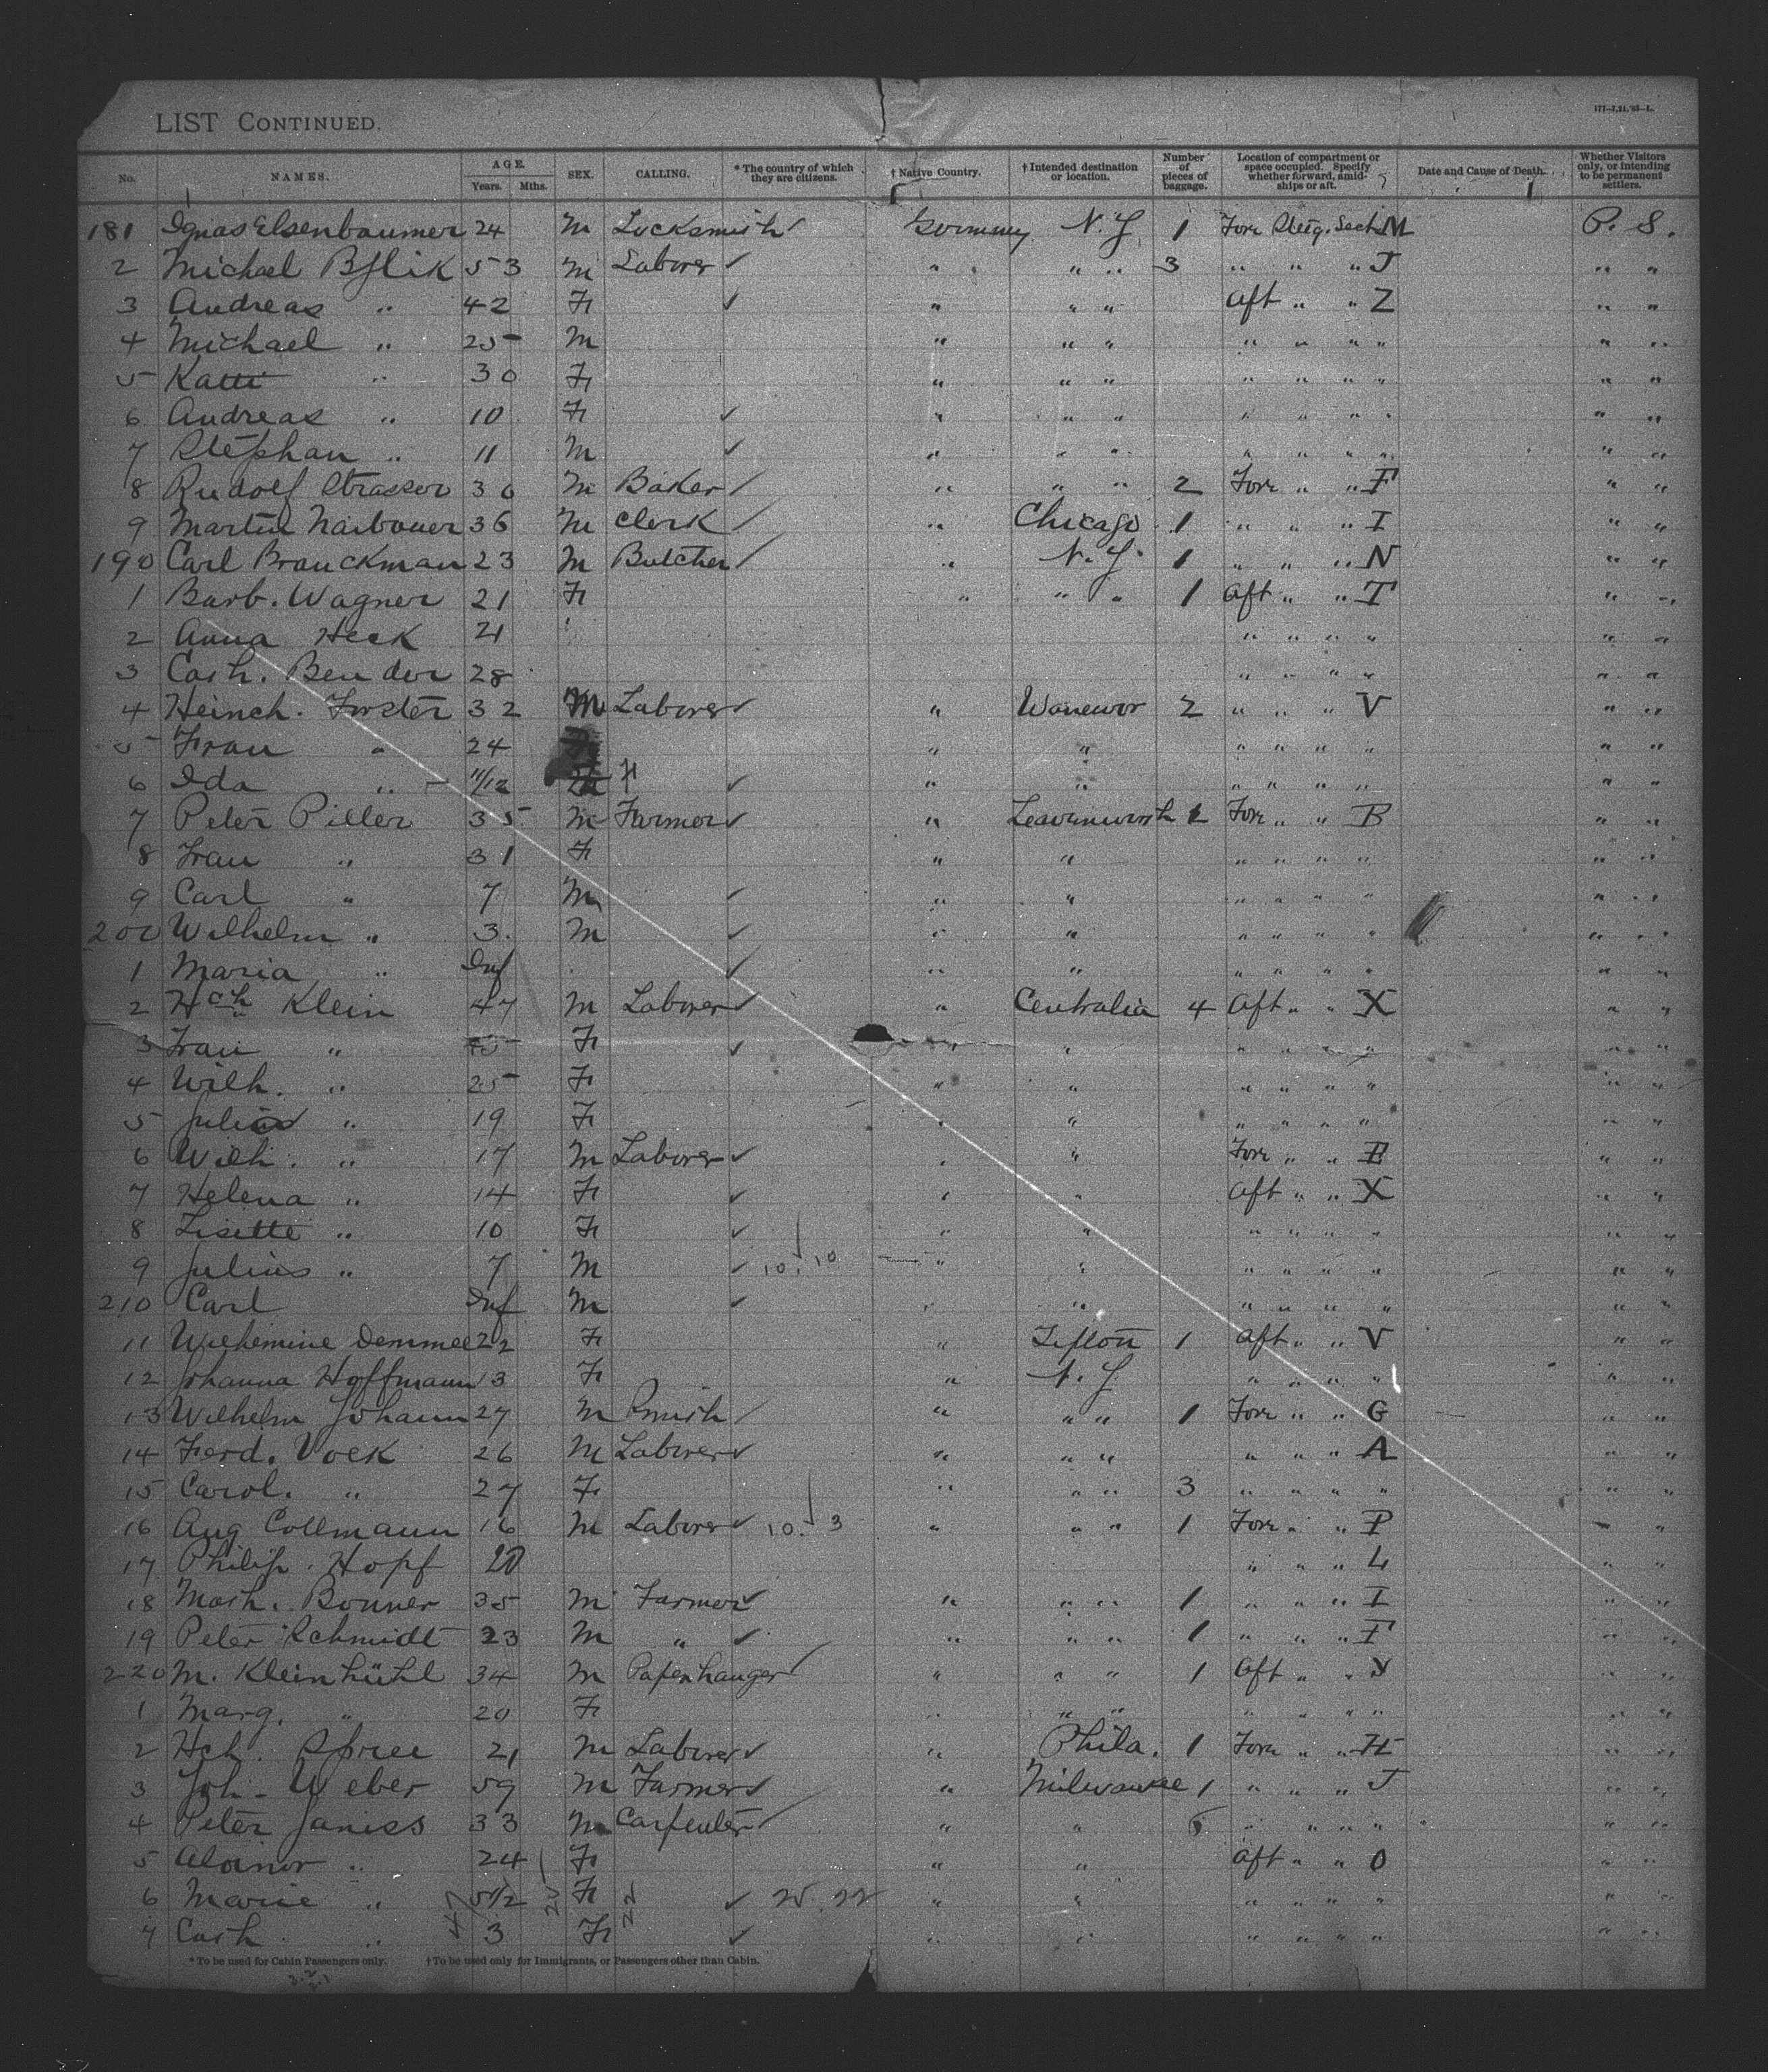 LIST CONTINUED.
No. NAMES. AGE. Years. Mths. SEX. CALLING. * The country of which they are citizens. † Native Country. † Intended destination or location. Number of pieces of baggage. Location of compartment or space occupied. Specify whether forward, amidships or aft. Date and Cause of Death. Whether Visitors only, or intending to be permanent settlers.
181 Ignas Elsenbaumer 24 M Locksmith Germany N. Y. 1 Fore Steig. Sect. M P. S.
2 Michael 53 M Laborer " " " 3 " " " J " "
3 Andreas " 42 F " " " Aft " " Z " "
4 Michael " 25 M " " " " " " " " "
5 Katti " 30 F " " " " " " " " "
6 Andreas " 10 F " " " " " " " " "
7 Stephan " 11 M " " " " " " " " "
8 Rudolf Strasser 30 M Baker " " " 2 Fore " " F " "
9 Martin Naibauer 36 M Clerk " Chicago 1 " " " I " "
190 Carl Brauckman 23 M Butcher " N. Y. 1 " " " N " "
1 Barb. Wagner 21 F " " " 1 Aft " " T " "
2 Anna Heck 21 " " " " " "
3 Cath. Bender 28 " " " " " "
4 Heinch. Forster 32 M Laborer " 2 " " " V " "
5 Frau " 24 " " " " " " " "
6 Ida " 11/12 F " " " " " " " "
7 Peter Piller 35 M Farmer " Leavinworth Fore " " B " "
8 Frau " 31 F " " " " " " " "
9 Carl " 7 M " " " " " " " "
200 Wilhelm " 3 M " " " " " " " "
1 Maria " Inf " " " " " " " "
2 Hch Klein 47 M Laborer " Centralia 4 Aft " " X " "
3 Frau " F " " " " " " " "
4 Wilh. " 25 F " " " " " " " "
5 " 19 F " " " " " " " "
6 Wilh. " 17 M Laborer " " Fore " " E " "
7 Helena " 14 F " " Aft " " X " "
8 Lisette " 10 F " " " " " " " "
9 Julius " 7 M 10. 10 " " " " " " " "
210 Carl Inf M " " " " " " " "
11 Wilhemine Demmel 22 F " 1 Aft " " V " "
12 Johanna Hoffmann 13 F " N. Y. " " " " " "
13 Wilhelm Johann 27 M Smith " " " 1 Fore " " G " "
14 Ferd. Voek 26 M Laborer " " " " " " A " "
15 Carol. " 27 F " " " 3 " " " " " "
16 Aug Collmann 16 M Laborer 10. 3 " " " 1 Fore " " P " "
17 Philip. Hopf 20 " " " L " "
18 Math. Bonner 35 M Farmer " " " 1 " " " I " "
19 Peter Schmidt 23 M " " " " 1 " " " F " "
220 M. Kleinhühl 34 M Paperhanger " " " 1 Aft " " Y " "
1 Marg. " 20 F " " " " " " " " "
2 Hch. Spree 21 M Laborer " Phila. 1 Fore " " H " "
3 Joh. Weber 59 M Farmer " Milwaukee 1 " " " J " "
4 Peter Janiss 33 M Carpenter " " " " " " " "
5 " 24 F " " Aft " " O " "
6 Marie " 5 1/2 F 25. 22 " " " " " " " "
7 Cath. " 3 F " " " " " " " "
* To be used for Cabin Passengers only. † To be used only for Immigrants, or Passengers other than Cabin.